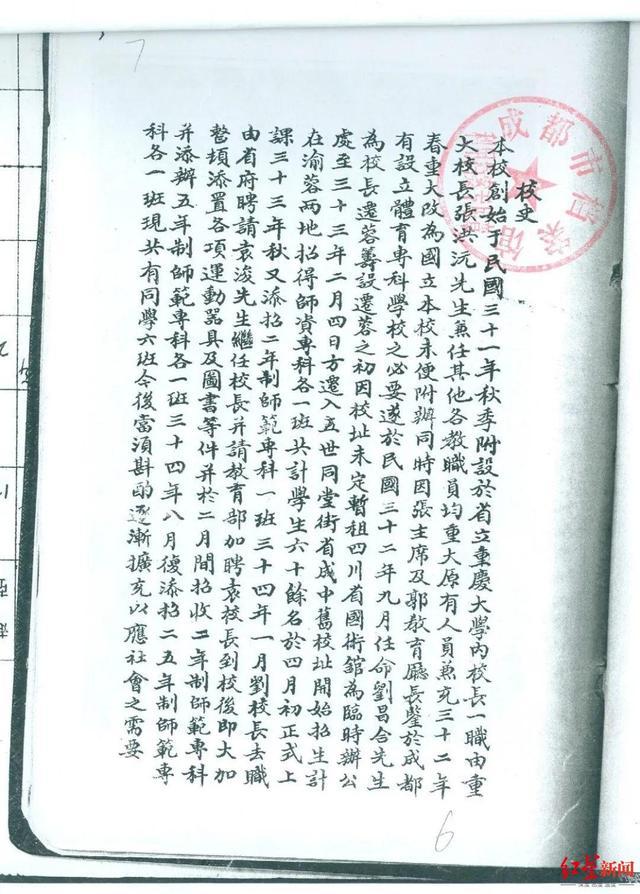 校史
本校創始于民國三十一年秋季附設於省立重慶大學內校長一職由重
大校長張洪沅先生兼任其他各教職員均重大原有人員兼充三十二年
春重大改為國立本校未便附辦同時因張主席及郭教育廳長鑒於成都
有設立體育專科學校之必要遂於民國三十二年九月任命劉昌合先生
為校長遷蓉籌設遷蓉之初因校址未定暫租四川省國術館為臨時辦公
處至三十三年二月四日方遷入五世同堂街省成中舊校址開始招生計
在渝蓉兩地招得師資專科各一班共計學生六十餘名於四月初正式上
課三十三年秋又添招二年制師範專科一班三十四年一月劉校長去職
由省府聘請袁浚先生繼任校長并請教育部加聘袁校長到校後即大加
整頓添置各項運動器具及圖書等件并於二月間招收二年制師範專科
并添辦五年制師範專科各一班三十四年八月復添招二五年制師範專
科各一班現共有同學六班今後當須斟酌逐漸擴充以應社會之需要
成都市档案馆
7
6
红星新闻